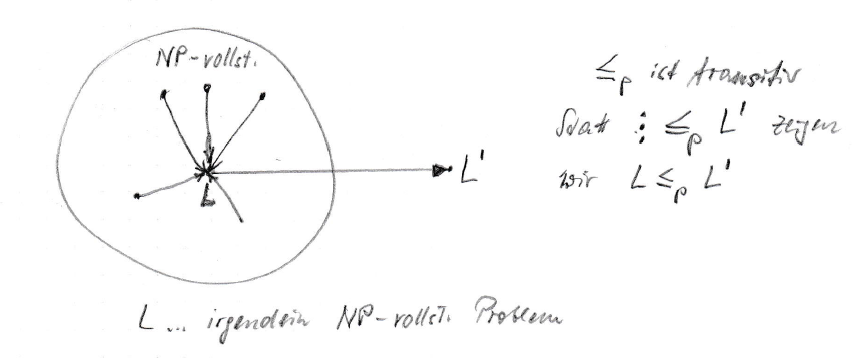 NP-vollst.
≤p ist transitiv
Statt ⋮ ≤p L' zeigen
wir L ≤p L'
L'
L
L ... irgendein NP-vollst. Problem